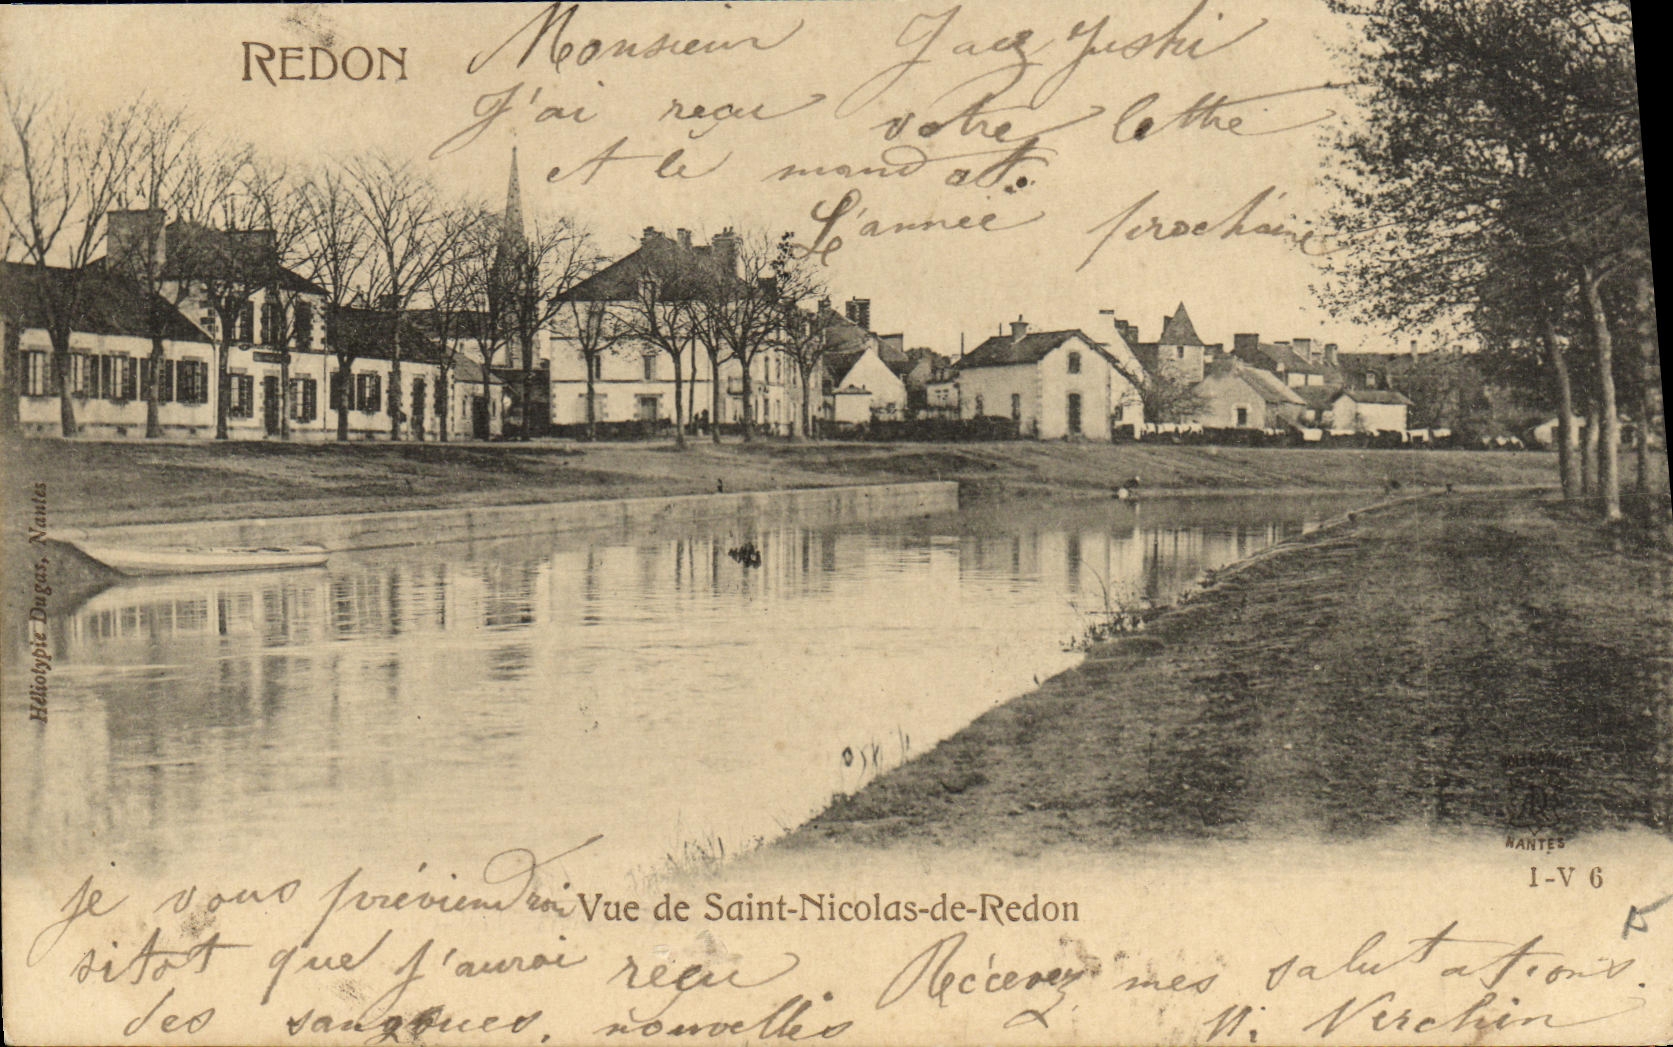 REDON
Monsieur
J'ai reçu votre lettre
et le mandat.
L'année prochaine
Héliotypie Dugas, Nantes
COLLECTION
NANTES
I-V 6
je vous préviendrai
Vue de Saint-Nicolas-de-Redon
sitot que j'aurai reçu
des sangsues, nouvelles
Récevez mes salutations.
Verchin